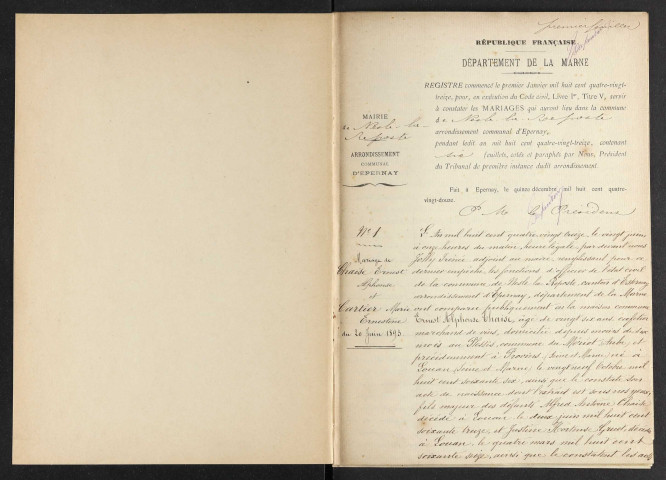 premier feuillet
RÉPUBLIQUE FRANÇAISE
DÉPARTEMENT DE LA MARNE
REGISTRE commencé le premier Janvier mil huit cent quatre-vingt-
treize, pour, en exécution du Code civil, Livre Ier, Titre V, servir
à constater les MARIAGES qui auront lieu dans la commune
de Nesle-la-Reposte
arrondissement communal d'Epernay,
pendant ledit an mil huit cent quatre-vingt-treize, contenant
six feuillets, cotés et paraphés par Nous, Président
du Tribunal de première instance dudit arrondissement.
Fait à Epernay, le quinze décembre mil huit cent quatre-
vingt-douze.
MAIRIE
de Nesle-la-
Reposte
ARRONDISSEMENT
COMMUNAL
D'EPERNAY
N° 1
Mariage de
Chaise Ernest
Alphonse
et
Cartier Marie
Ernestine
du 20 Juin 1893.
L'an mil huit cent quatre vingt treize, le vingt juin
à onze heures du matin, heure légale, par devant nous
Jolly Irénée adjoint au maire, remplissant pour ce
dernier empêché, les fonctions d'officier de l'état civil
de la commune de Nesle la Reposte, canton d'Esternay
arrondissement d'Epernay, département de la Marne
ont comparu publiquement en la maison commune
Ernest Alphonse Chaise, âgé de vingt six ans, profession
marchand de vins, domicilié depuis moins de six
mois au Plessis, commune du Mériot Aube, et
précédemment à Provins, Seine et Marne, né à
Louan, Seine et Marne, le vingt neuf Octobre mil
huit cent soixante six, ainsi que le constate son
acte de naissance dont l'extrait est sous nos yeux,
fils majeur des défunts Alfred Antoine Chaise
décédé à Louan le deux juin mil huit cent
soixante treize, et Justine Hortense, décédée
à Louan, le quatre mars mil huit cent
soixante seize, ainsi que le constatent les